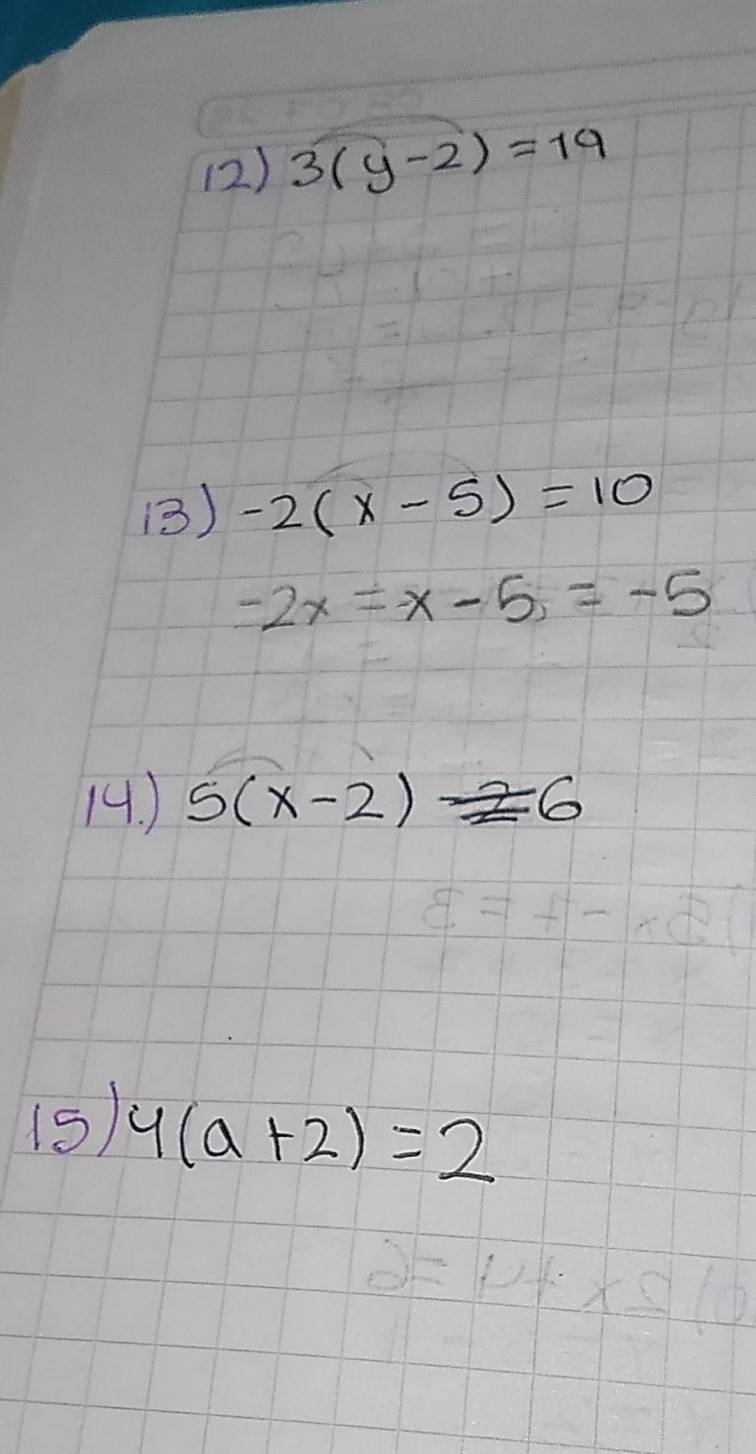 12) 3(y-2) = 19
13) -2(x - 5) = 10
-2x = x - 5, = -5
14.) 5(x-2) = 6
15) 4(a+2) = 2